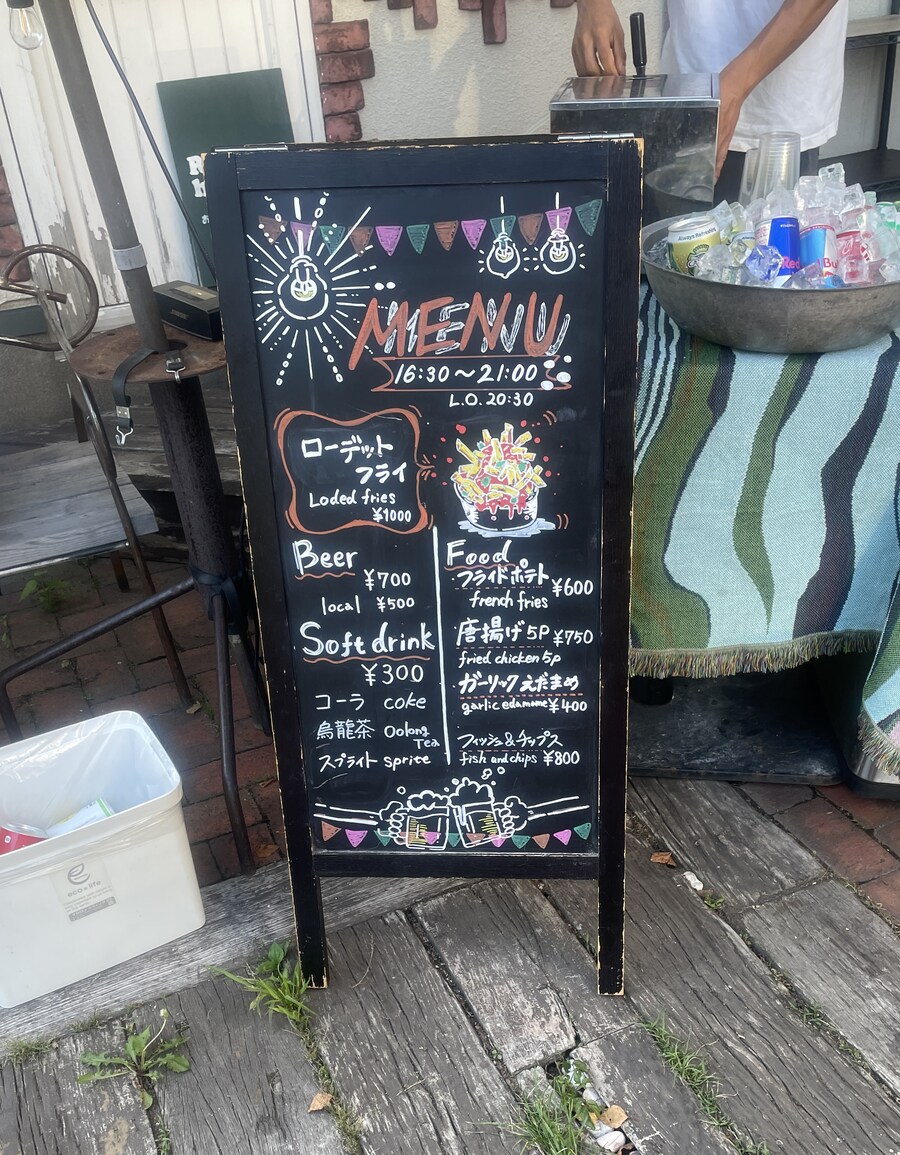 MENU
16:30〜21:00
L.O. 20:30
ローデット
フライ
Loded fries
¥1000
Beer
¥700
local ¥500
Soft drink
¥300
コーラ coke
烏龍茶 Oolong
Tea
スプライト sprite
Food
・フライドポテト ¥600
french fries
唐揚げ 5P ¥750
fried chicken 5p
ガーリックえだまめ
garlic edamame ¥400
フィッシュ&チップス
fish and chips ¥800
Always Refreshing
Red Bu
eco×life